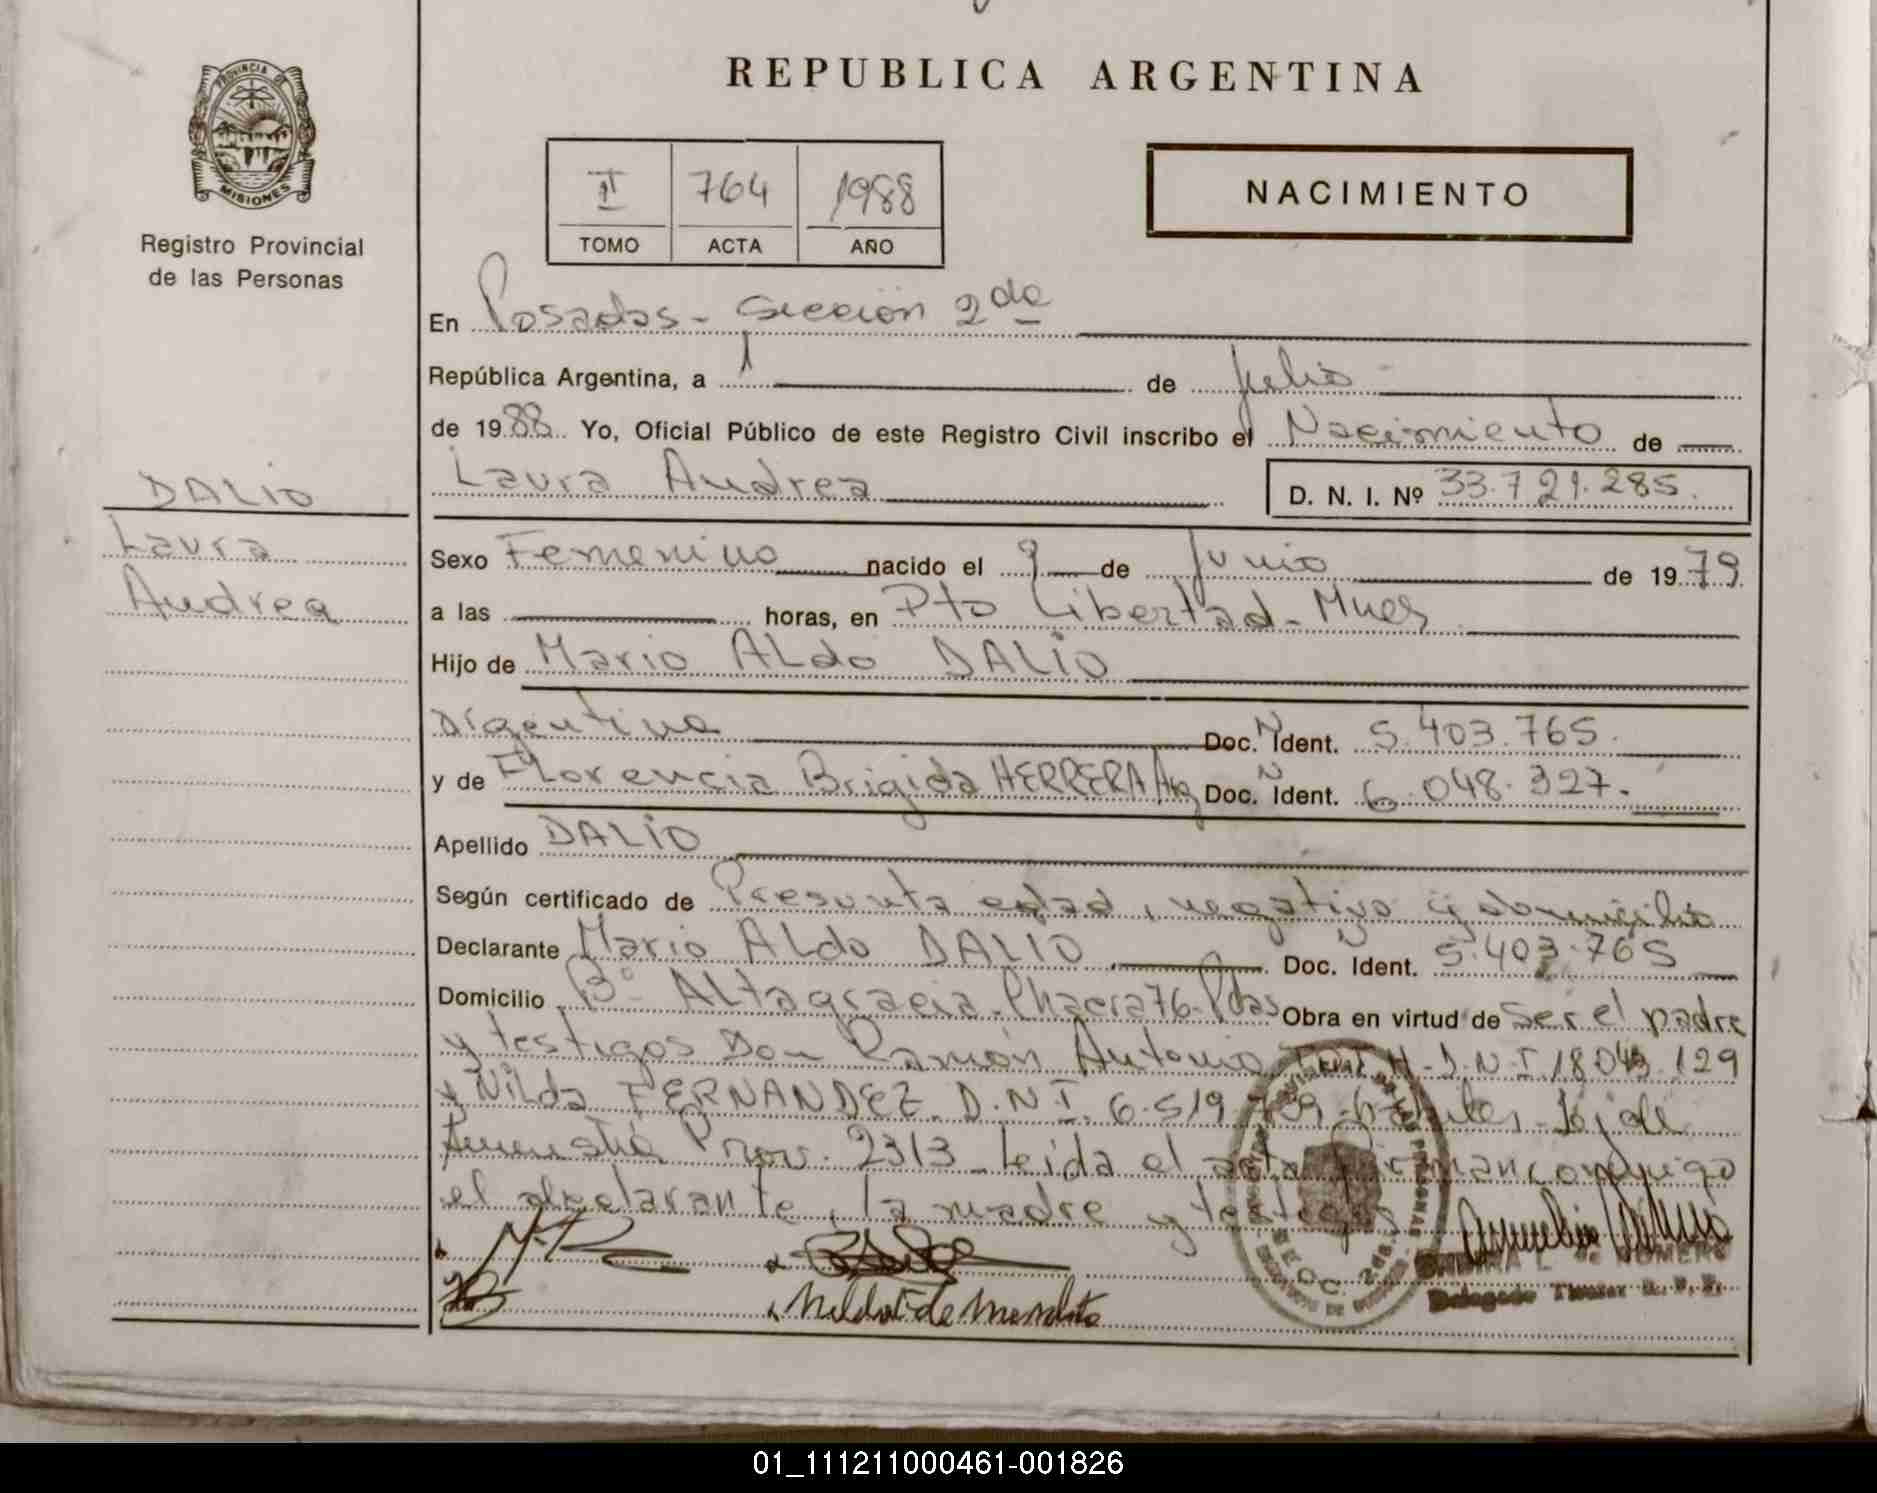 PROVINCIA DE
MISIONES
Registro Provincial
de las Personas
REPUBLICA ARGENTINA
II 764 1988
TOMO ACTA AÑO
NACIMIENTO
En Posadas - Sección 2da
República Argentina, a 1 de julio
de 1988 Yo, Oficial Público de este Registro Civil inscribo el Nacimiento de
Laura Andrea D. N. I. Nº 33.721.285.
DALIO
Laura
Andrea
Sexo Femenino nacido el 9 de Junio de 1979
a las horas, en Pto Libertad - Mnes
Hijo de Mario ALdo DALIO
Argentino Doc. N Ident. 5.403.765.
y de Florencia Brigida HERRERA Arg Doc. N Ident. 6.048.327.
Apellido DALIO
Según certificado de Presunta edad, negativo y domicilio
Declarante Mario ALdo DALIO Doc. N Ident. 5.403.765
Domicilio Bº ALtagracia - Chacra 76 - Pdas Obra en virtud de ser el padre
y testigos Don Ramón Antonio D.N.I 18.043.129
y Nilda FERNANDEZ D.N.I. 6.519
Amnistia Prov. 2313 - Leida el acta firman conmigo
el declarante, la madre y testigos
DE ROMERO
Delegado Titular R. P. P.
01_111211000461-001826